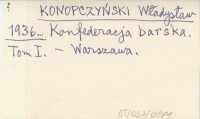 ?
KONOPCZYŃSKI Władysław
1936... Konfederacja barska.
Tom I. - Warszawa.